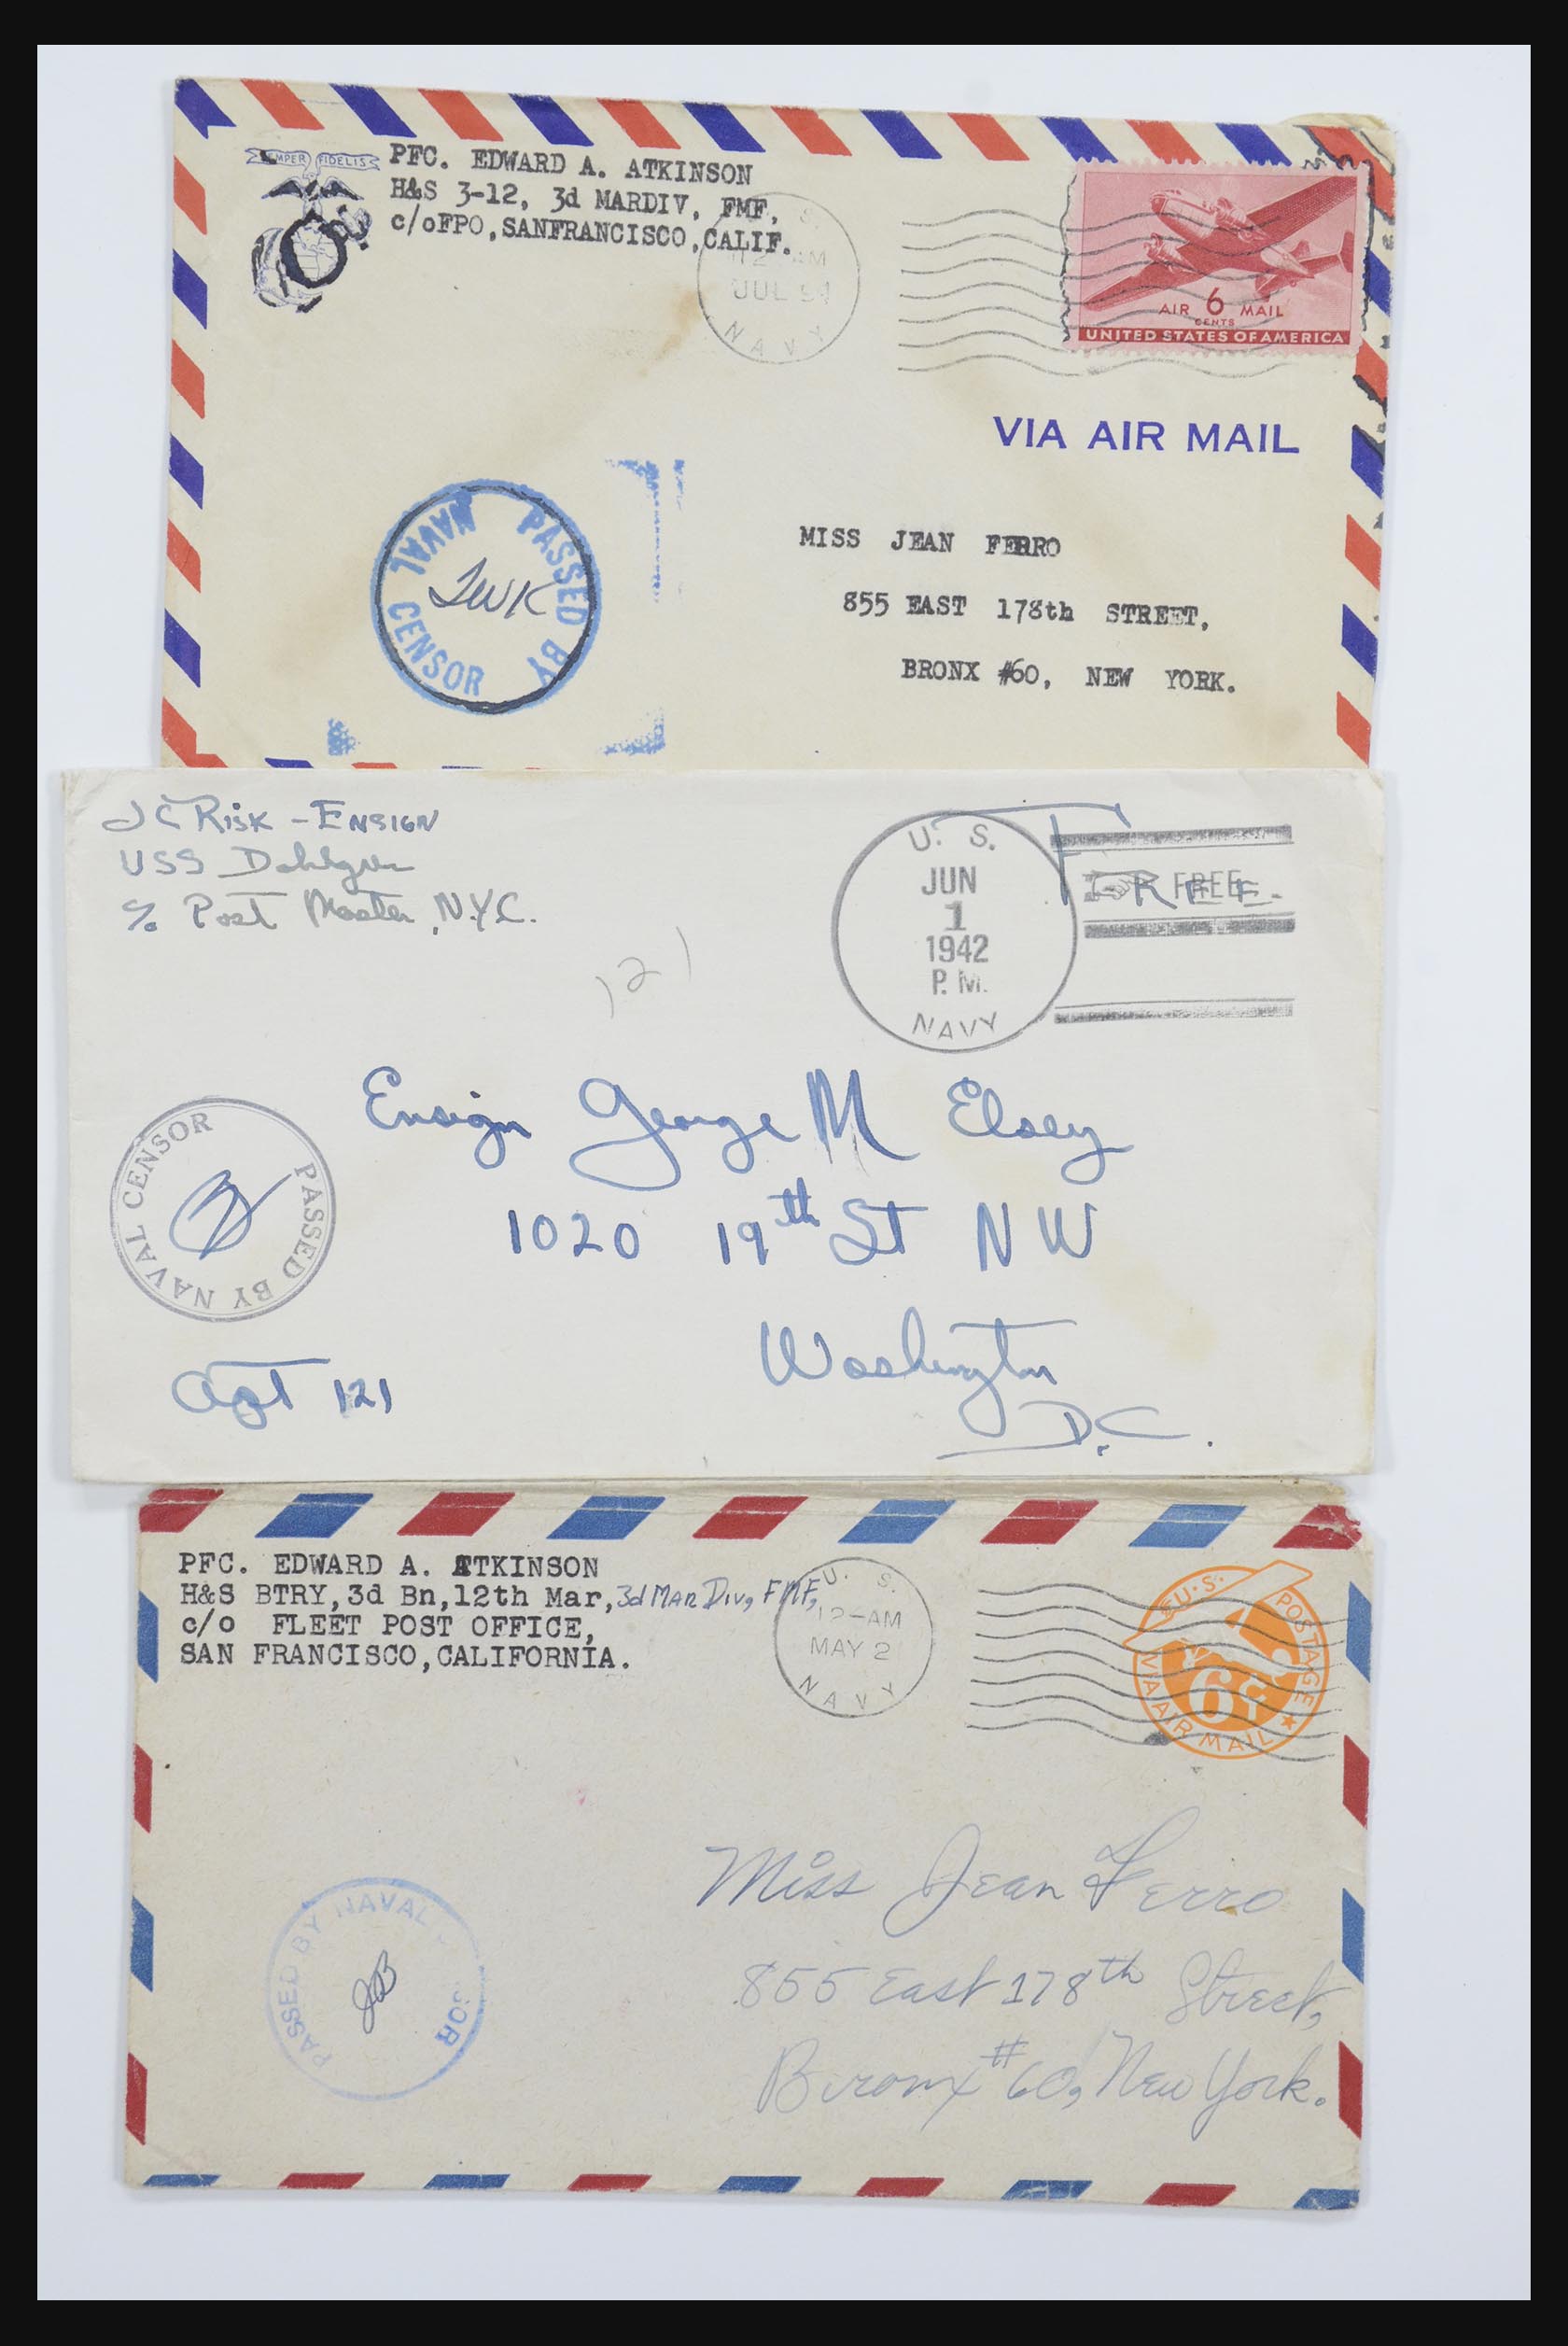 SEMPER FIDELIS
PFC. EDWARD A. ATKINSON
H&S 3-12, 3d MARDIV, FMF,
c/oFPO,SANFRANCISCO,CALIF.
S.
12 AM
JUL
NAVY
AIR 6 MAIL
CENTS
UNITED STATES OF AMERICA
VIA AIR MAIL
PASSED BY
NAVAL CENSOR
MISS JEAN FERRO
855 EAST 178th STREET,
BRONX #60, NEW YORK.
JC Risk - Ensign
USS Dahlgren
c/o Post Master, N.Y.C.
U. S.
JUN
1
1942
P. M.
NAVY
Free.
FREE
121
Ensign George M Elsey
1020 19th St NW
Washington
D.C.
PASSED BY NAVAL CENSOR
Apt 121
PFC. EDWARD A. ATKINSON
H&S BTRY,3d Bn,12th Mar,3d MAR DIV, FMF,
c/o FLEET POST OFFICE,
SAN FRANCISCO,CALIFORNIA.
U. S.
12-AM
MAY 2
NAVY
U.S. POSTAGE
6¢
VIA AIR MAIL
PASSED BY NAVAL SOR
JB
Miss Jean Ferro
855 East 178th Street,
Bronx #60, New York.